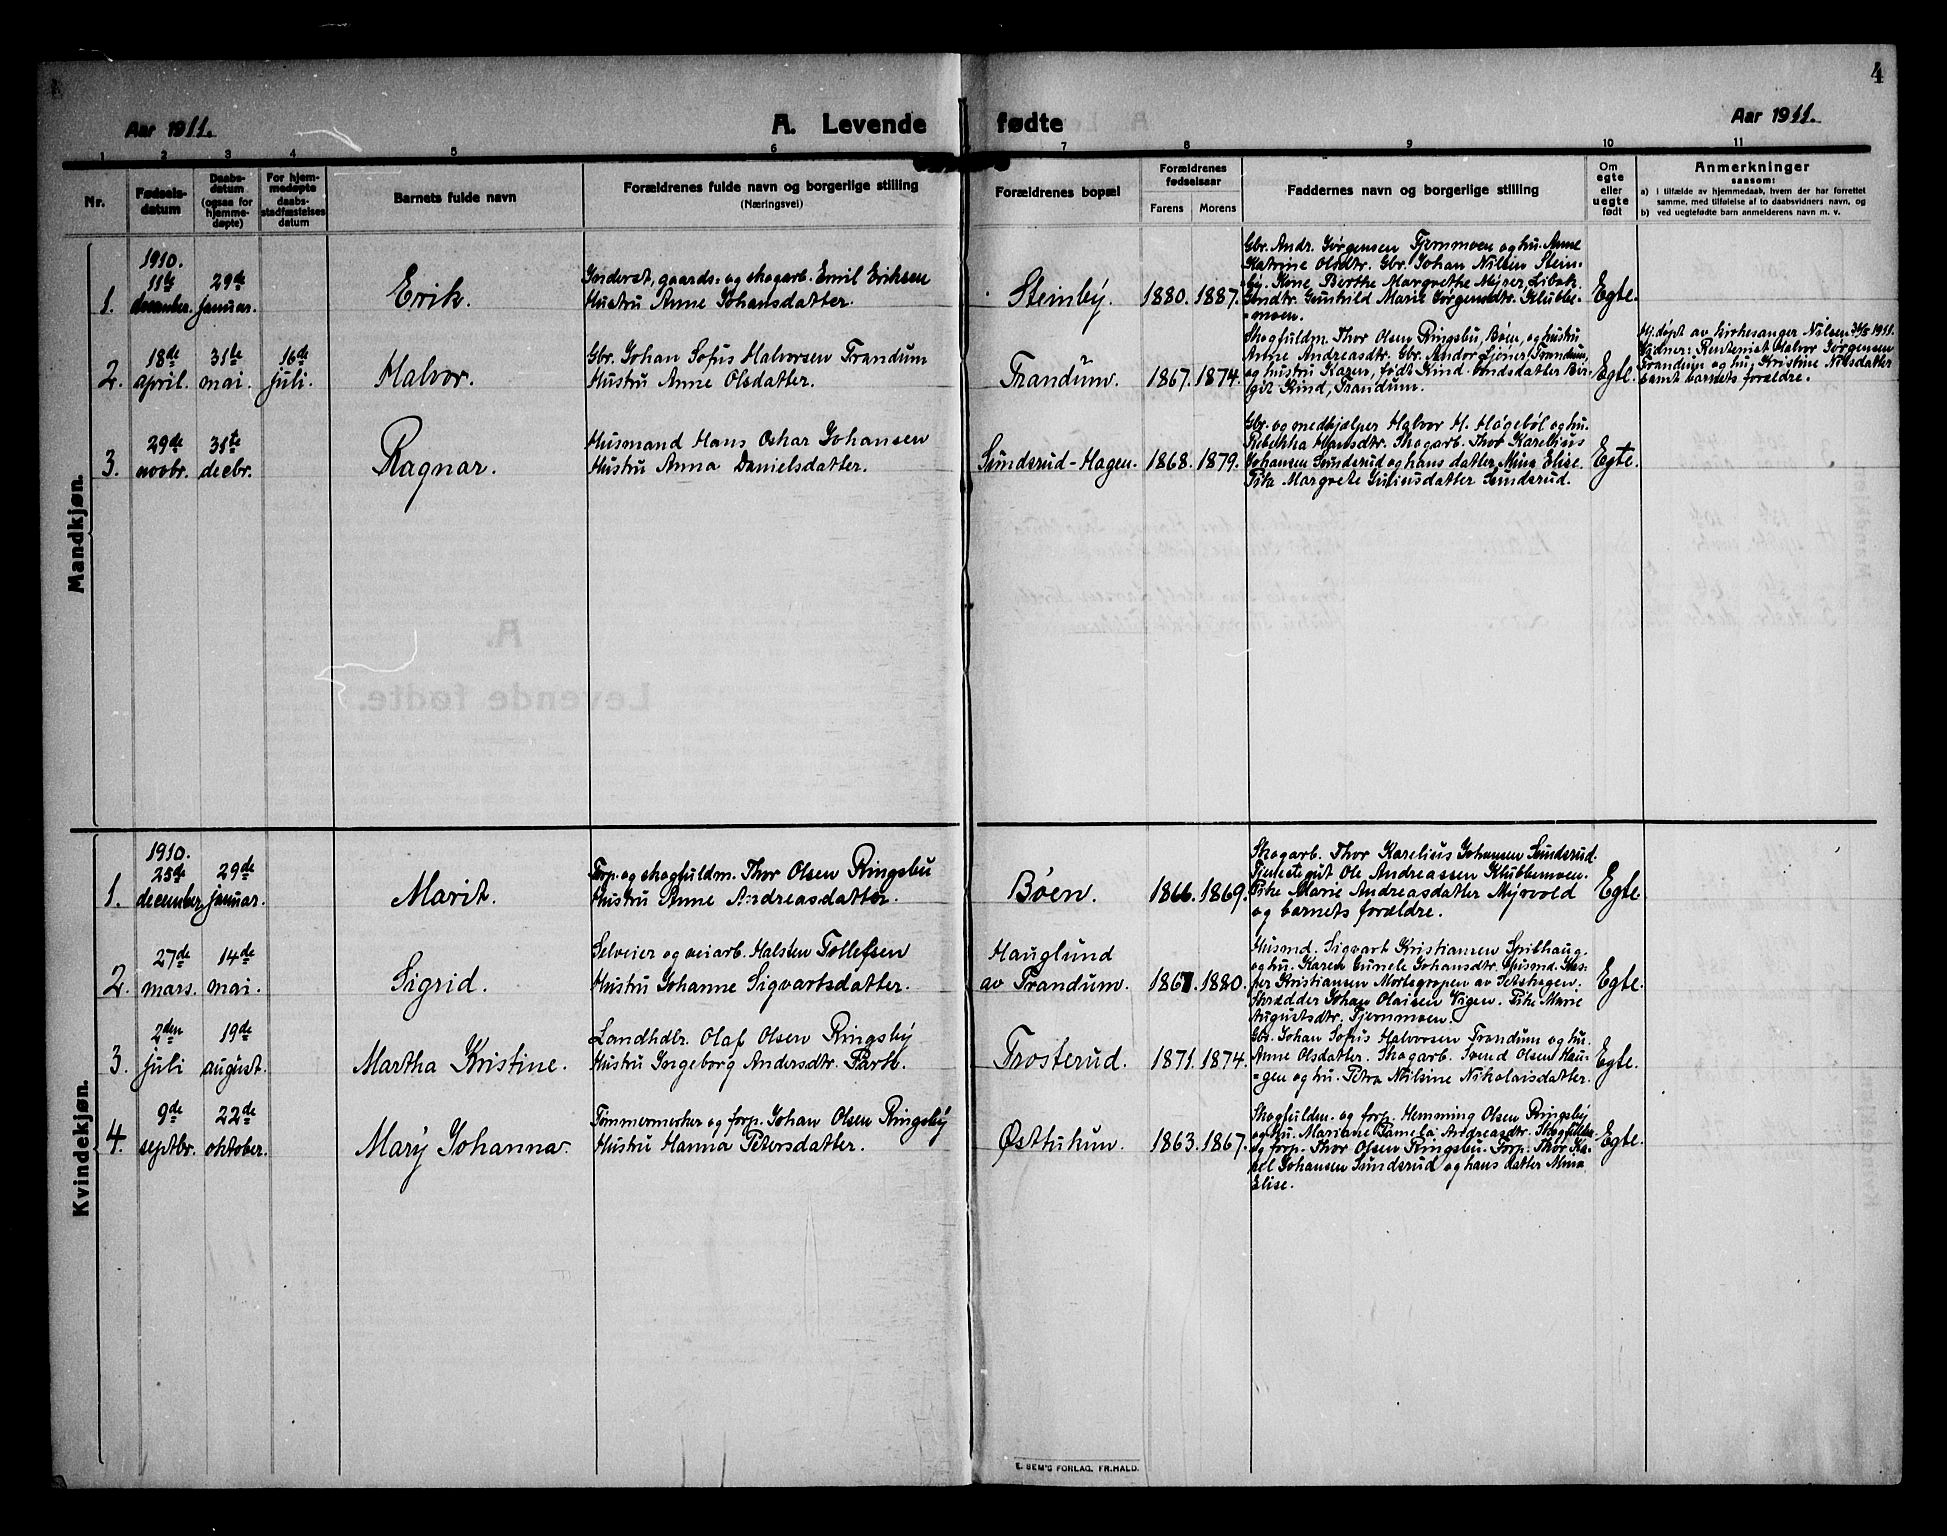 4
Aar 1911.
A. Levende fødte
Aar 1911.
1 2 3 4 5 6 7 8 9 10 11
Nr.
Fødsels-
datum
Daabs-
datum
(ogsaa for
hjemme-
døpte)
For hjem-
medøpte
daabs-
stadfæstelses
datum
Barnets fulde navn
Forældrenes fulde navn og borgerlige stilling
(Næringsvei)
Forældrenes bopæl
Forældrenes
fødselsaar
Farens Morens
Faddernes navn og borgerlige stilling
Om
egte
eller
uegte
født
Anmerkninger
saasom:
a) i tilfælde av hjemmedaab, hvem der har forrettet
samme, med tilføielse af to daabsvidners navn, og
b) ved uegtefødte barn anmelderens navn m. v.
Mandkjøn.
1.
1910.
11te
december.
29de
januar.
Erik.
Inderst, gaards- og skogarb. Emil Eriksen
Hustru Anne Johansdatter.
Steinby.
1880. 1887.
Gbr. Andr. Jørgensen Tjernmoen og hu. Anne
Katrine Olsdtr. Gbr. Johan Nilsen Stein-
by. Kone Berthe Margrethe Myrer, Libak.
Gmdtr. Gunhild Marie Jørgensdtr. Klubbe-
moen.
Egte.
2.
18de
april.
31te
mai.
16de
juli.
Halvor.
Gbr. Johan Sofus Halvorsen Trandum
Hustru Anne Olsdatter.
Trandum.
1867. 1874.
Skogfuldm. Thor Olsen Ringsbu, Bøen, og hustru
Anne Andreasdtr. Gbr. Andor Trandum,
og hustru Karen, født Kind. Bir-
git Kind, Trandum.
Egte.
Hj.døpt av kirkesanger Nilsen 31/5 1911.
Vidner: Rentenist Halvor Jørgensen
Trandum og hu. Kristine Nilsdatter
samt barnets forældre.
3.
29de
novbr.
31te
decbr.
Ragnar.
Husmand Hans Oskar Johansen
Hustru Anna Danielsdatter.
Sundsrud-Hagen.
1868. 1879.
Gbr. og medhjælper Halvor H. Høgebøl og hu.
Rebekka Hansdtr. Skogarb. Thor Karelius
Johansen Sundsrud og hans datter Mina Elise.
Pike Margrete Juliusdatter Sundsrud.
Egte.
Kvindekjøn.
1.
1910.
25de
december
29de
januar.
Marit.
Forp. og skogfuldm. Thor Olsen Ringsbu
Hustru Anne Andreasdatter.
Bøen.
1866. 1869.
Skogarb. Thor Karelius Johansen Sundsrud.
Tjenestegut Ole Andreassen Klubbemoen.
Pike Marie Andreasdatter Myrvold
og barnets forældre.
Egte
2.
27de
mars.
14de
mai.
Sigrid.
Selveier og veiarb. Halsten Tollefsen
Hustru Johanne Sigvartsdatter.
Hauglund
av Trandum.
1867. 1880.
Husmd. Sigvart Kristiansen Spikhaug
og hu. Karen Gunele Johansdtr. Husmd. Kas-
per Kristiansen Mortsgropen av Tetshagen.
Skrædder Johan Olaisen Vigen. Pike Marie
Augustsdtr. Tjernmoen.
Egte.
3.
2den
juli
19de
august.
Martha Kristine.
Landhdlr. Olaf Olsen Ringsby
Hustru Ingeborg Andersdtr. Partb.
Trosterud.
1871. 1874
Gbr. Johan Sofus Halvorsen Trandum og hu.
Anne Olsdatter. Skogarb. Svend Olsen Hau-
gen og hu. Petra Nilsine Nikolaisdatter.
Egte.
4.
9de
septbr.
22de
oktober.
Mary Johanna.
Tømmermerker og forp. Johan Olsen Ringsby
Hustru Hanna Petersdatter.
Østhuhun.
1863. 1867.
Skogfuldm. og forp. Hemming Olsen Ringsby
og hu. Mariane Pamela Andreasdtr. Skogfuldm.
og forp. Thor Olsen Ringsbu. Forp. Thor Ka-
rel Johansen Sundsrud og hans datter Mina
Elise.
Egte.
E. SEM'S FORLAG, FR.HALD.